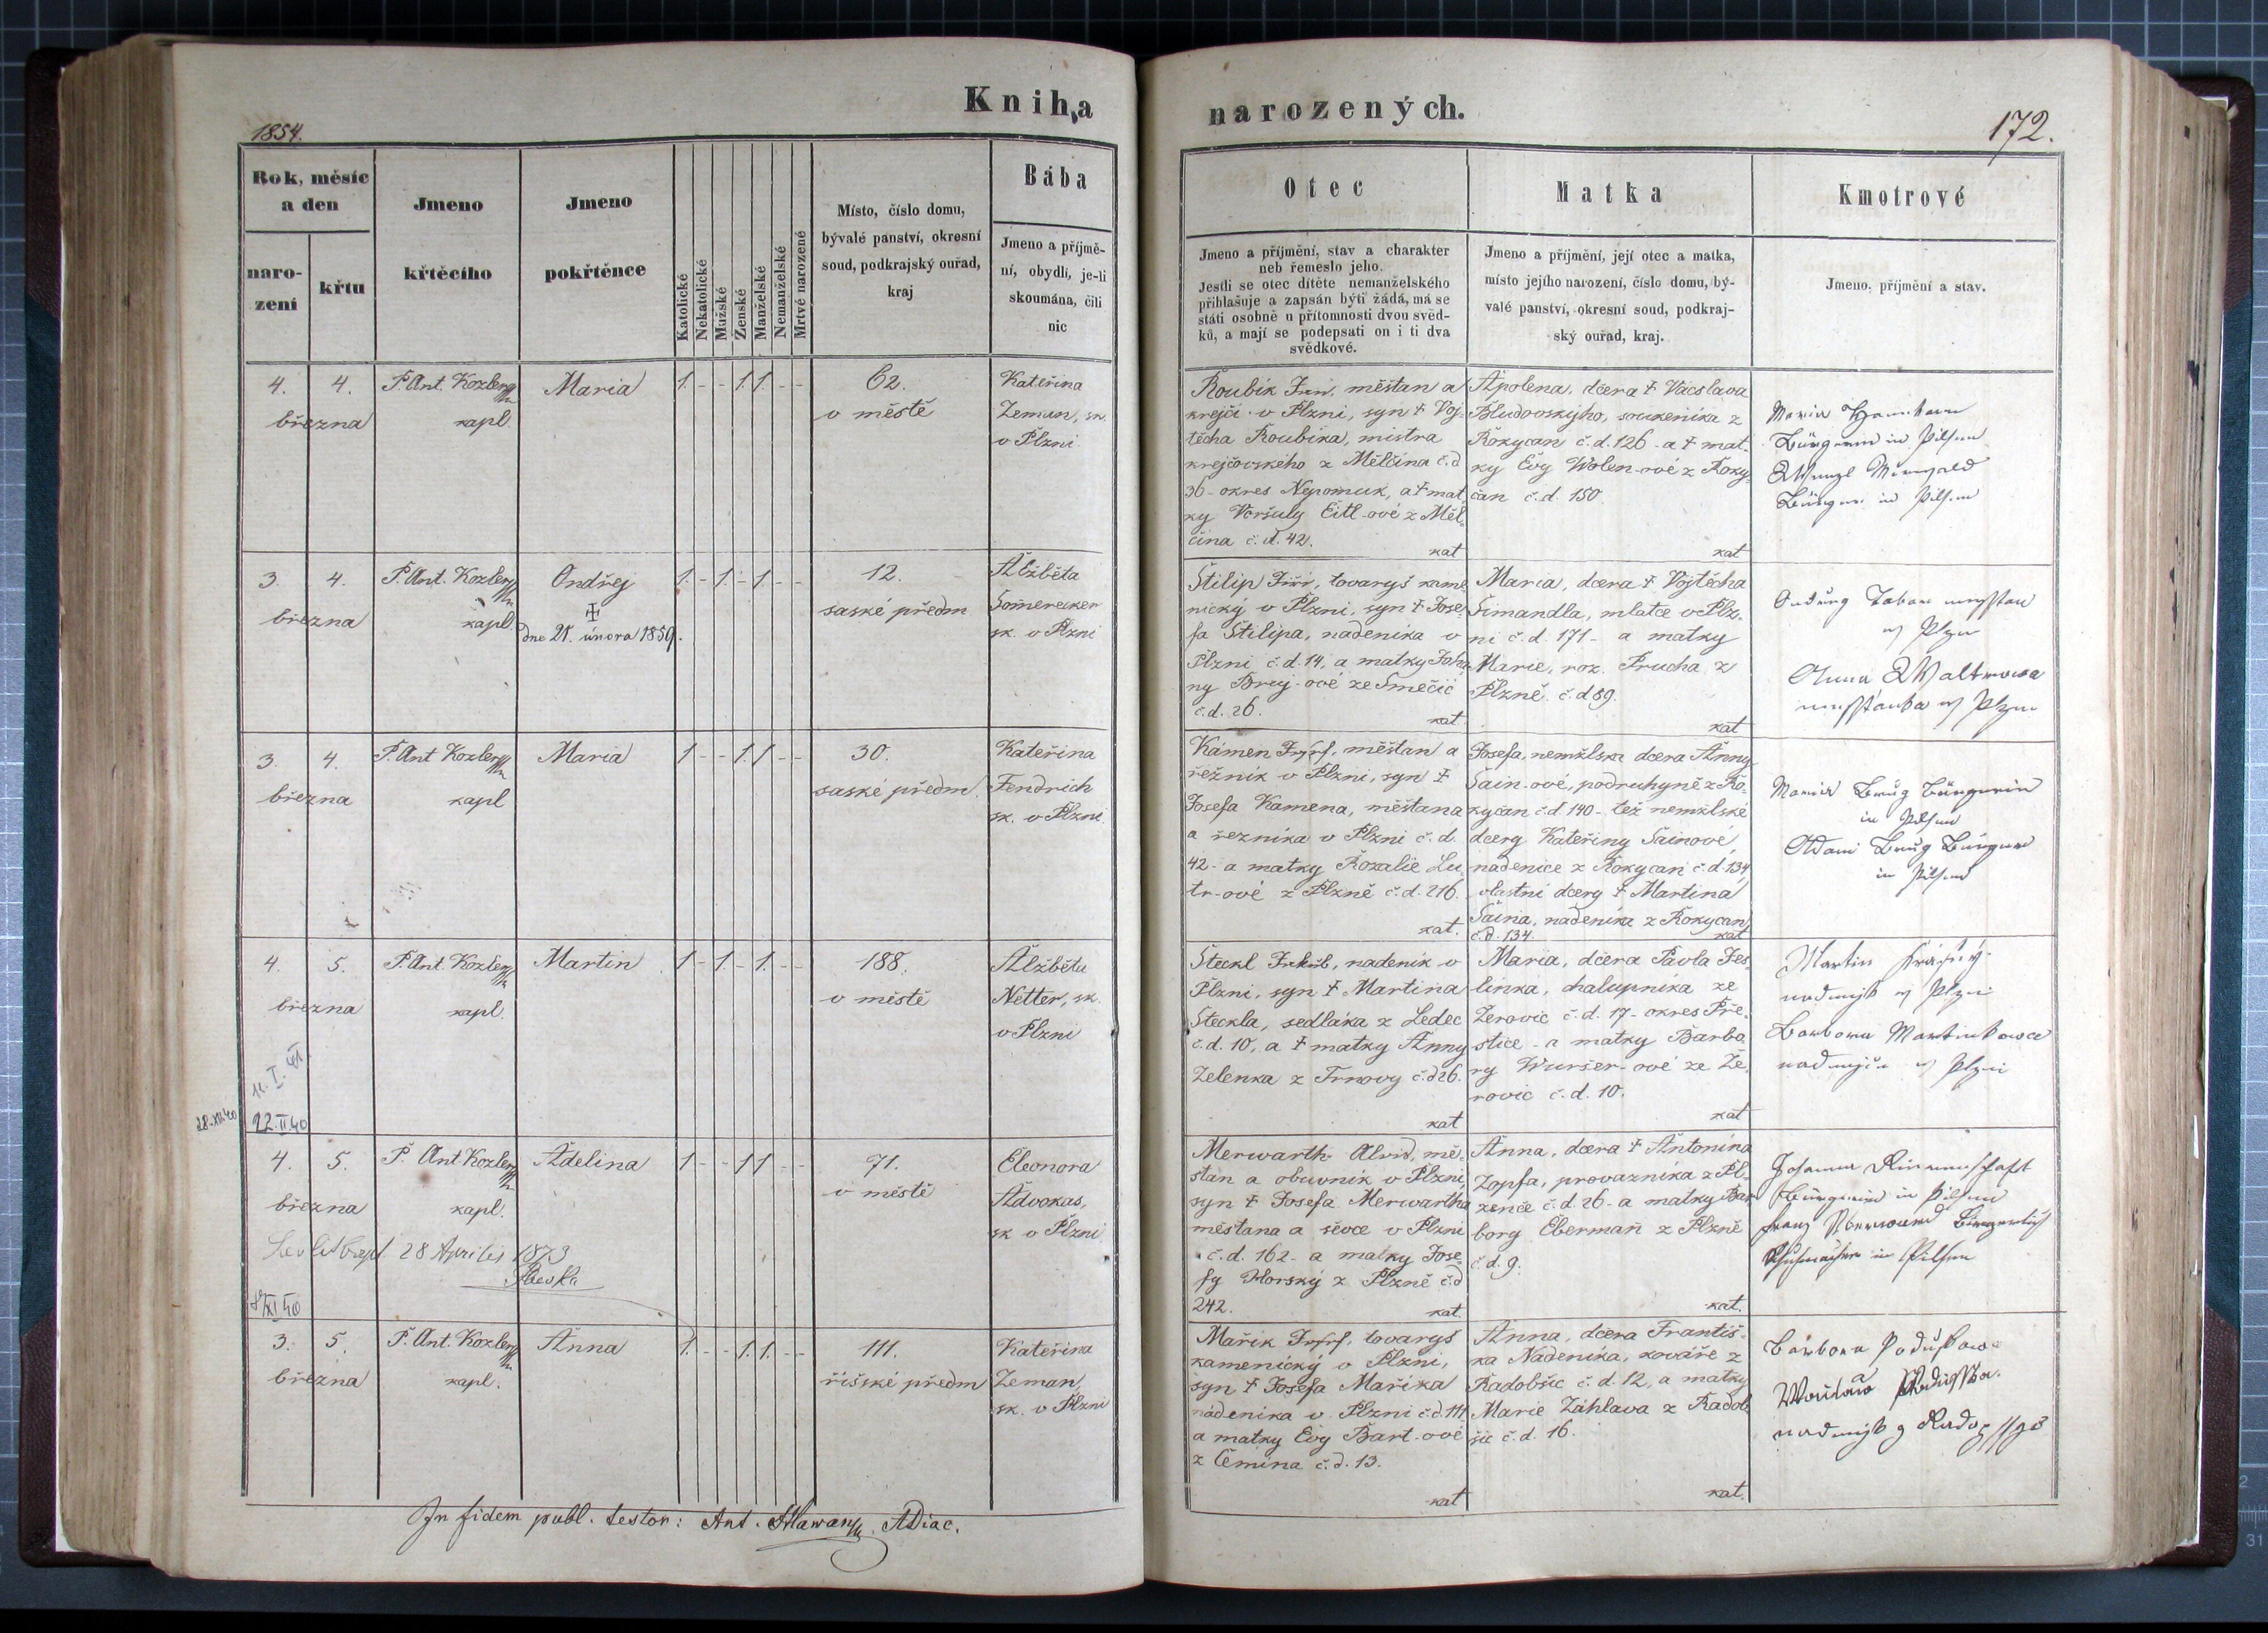 Kniha
narozených.
1854.
172.
Rok, měsíc
a den
naro-
zení
křtu
Jmeno
křtěcího
Jmeno
pokřtěnce
Katolické
Nekatolické
Mužské
Ženské
Manželské
Nemanželské
Mrtvé narozené
Místo, číslo domu,
bývalé panství, okresní
soud, podkrajský ouřad,
kraj
Bába
Jmeno a příjmě-
ní, obydlí, je-li
skoumána, čili
nic
Otec
Jmeno a příjmění, stav a charakter
neb řemeslo jeho.
Jestli se otec dítěte nemanželského
přihlašuje a zapsán býti žádá, má se
státi osobně u přítomnosti dvou svěd-
ků, a mají se podepsati on i ti dva
svědkové.
Matka
Jmeno a příjmění, její otec a matka,
místo jejího narození, číslo domu, bý-
valé panství, okresní soud, podkraj-
ský ouřad, kraj.
Kmotrové
Jmeno, příjmění a stav.
4. 4.
března
P. Ant. Kozler
kapl.
Maria
1. - - 1. 1 - -
62.
v městě
Kateřina
Zeman, sk.
v Plzni
Roubík měštan a
krejčí v Plzni, syn † Voj-
těcha Roubíka, mistra
krejčovského z Mělčína č.d
36 - okres Nepomuk, a † mat
ky Voršuly Eitl-ové z Měl
čína č.d. 42.
kat
Apolena, dcera † Vácslava
Bludovskýho, soukeníka z
Rokycan č.d. 126 - a † mat-
ky Evy Wolen-ové z Roky-
can č.d. 150.
kat
Bürgerin in Pilsen
Bürger in Pilsen
3. 4.
března
P. Ant. Kozler
kapl
Ondřej
†
dne 21. února 1859.
1. - 1. - 1 - -
12.
saské předm
Alžběta
Somerecker
sk. v Plzni
Štilip Jiří, tovaryš kame
nický v Plzni, syn † Jose-
fa Štilipa, nadeníka v
Plzni č.d. 14, a matky Joha
ny Bruj-ové ze Smečic
č.d. 26.
kat
Maria, dcera † Vojtěcha
Šimandla, mlatce v Plz-
ni č.d. 171 - a matky
Marie, roz. Prucha z
Plzně č.d 89.
kat
w Plzni
Anna Waltrowa
w Plzni
3. 4.
března
P. Ant Kozler
kapl
Maria
1 - - 1. 1 - -
30.
saské předm.
Kateřina
Fendrich
sk. v Plzni
Kámen Josef, měštan a
řežník v Plzni, syn †
Josefa Kamena, měštana
a řezníka v Plzni č.d.
42 - a matky Rozalie Lu
tr-ové z Plzně č.d. 216.
kat.
Josefa, nemžlská dcera Anny
Šain-ové, podruhyně z Ro-
kycan č.d 140 - též nemžlské
dcery Kateřiny Šainové,
nadenice z Rokycan č.d. 134
vlastní dcery † Martina
Šaina, nadeníka z Rokycan
č.d. 134.
kat
Bürgerin
in Pilsen
in Pilsen
4. 5.
března
P. Ant. Kozler
kapl.
Martin
1 - 1 - 1. - -
188.
v městě
Alžběta
Netter, sk.
v Plzni
Steckl Jakub, nadeník v
Plzni, syn † Martina
Steckla, sedláka z Ledec
č.d. 10, a † matky Anny
Zelenka z Trnovy č.d 26.
kat
Maria, dcera Pavla Jes-
linka, chalupníka ze
Žerovic č.d. 17 - okres Pře-
stice - a matky Barbo-
ry Wuršer-ové ze Že-
rovic č.d. 10.
kat
Martin
w Plzni
Barbora Martinkowa
w Plzni
11. I. 41
28.XII.40
22.II.40
4. 5.
března
P. Ant Kozler
kapl.
Adelina
1 - - 1 1 - -
71.
v městě
Eleonora
Advokas,
sk v Plzni
28 Aprilis 1873
Merwarth Alvid, mě-
štan a obuvník v Plzni,
syn † Josefa Merwartha
měštana a ševce v Plzni
č.d. 162 - a matky Jose-
fy Horský z Plzně č.d
242.
kat.
Anna, dcera † Antonína
Zopfa, provazníka z Pl-
zeně č.d. 26 - a matky Bar
bory Eberman z Plzně
č.d. 9.
kat.
Bürgerin in Pilsen
Schuhmacher in Pilsen
XI 40
3. 5.
března
P. Ant. Kozler
kapl.
Anna
1. - - 1. 1. - -
111.
říšské předm
Kateřina
Zeman,
sk. v Plzni
Mařík Josef, tovaryš
kamenický v Plzni,
syn † Josefa Maříka
nádeníka v Plzni č.d. 111
a matky Evy Bart-ové
z Čemína č.d. 13.
kat
Anna, dcera Františ-
ka Nadeníka, kováře z
Radobšic č.d. 12, a matky
Marie Záhlava z Radob
šic č.d. 16.
kat.
Barbora
In fidem publ. testor: Ant. Hlawan . ADiac.